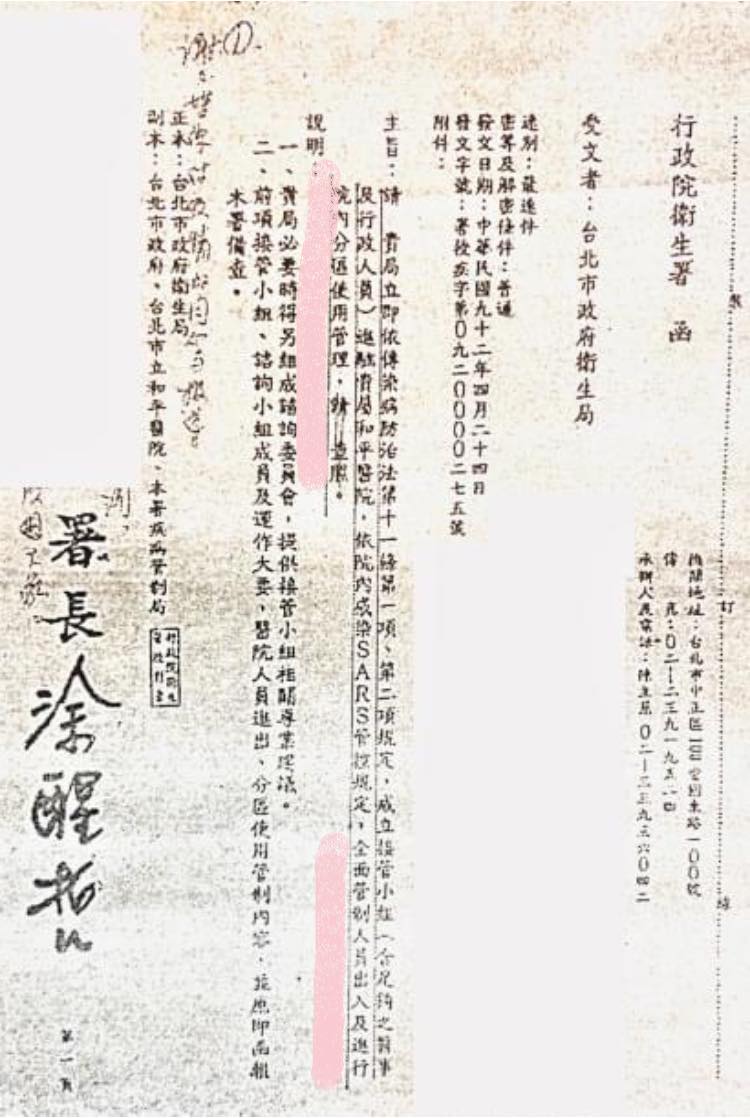 行政院衛生署 函
機關地址:台北市中正區愛國東路一00號
傳 真:0二-二三九一九五二四
受文者:台北市政府衛生局
速別:最速件
密等及解密條件:普通
發文日期:中華民國九十二年四月二十四日
發文字號:署授疾字第0九二0000二七五號
附件:
主旨:請 貴局立即依傳染病防治法第十一條第一項、第二項規定,成立接管小組(含足夠之醫事
及行政人員)進駐貴局和平醫院,依院內感染SARS管控規定,全面管制人員出入及進行
院內分區使用管理,請 查照。
說明:
一、貴局必要時得另組成諮詢委員會,提供接管小組相關專業建議。
二、前項接管小組、諮詢小組成員及運作大要,醫院人員進出、分區使用管制內容,並應即函報
本署備查。
正本:台北市政府衛生局
副本:台北市政府、台北市立和平醫院、本署疾病管制局
署長涂醒哲
第一頁
裝
訂
線